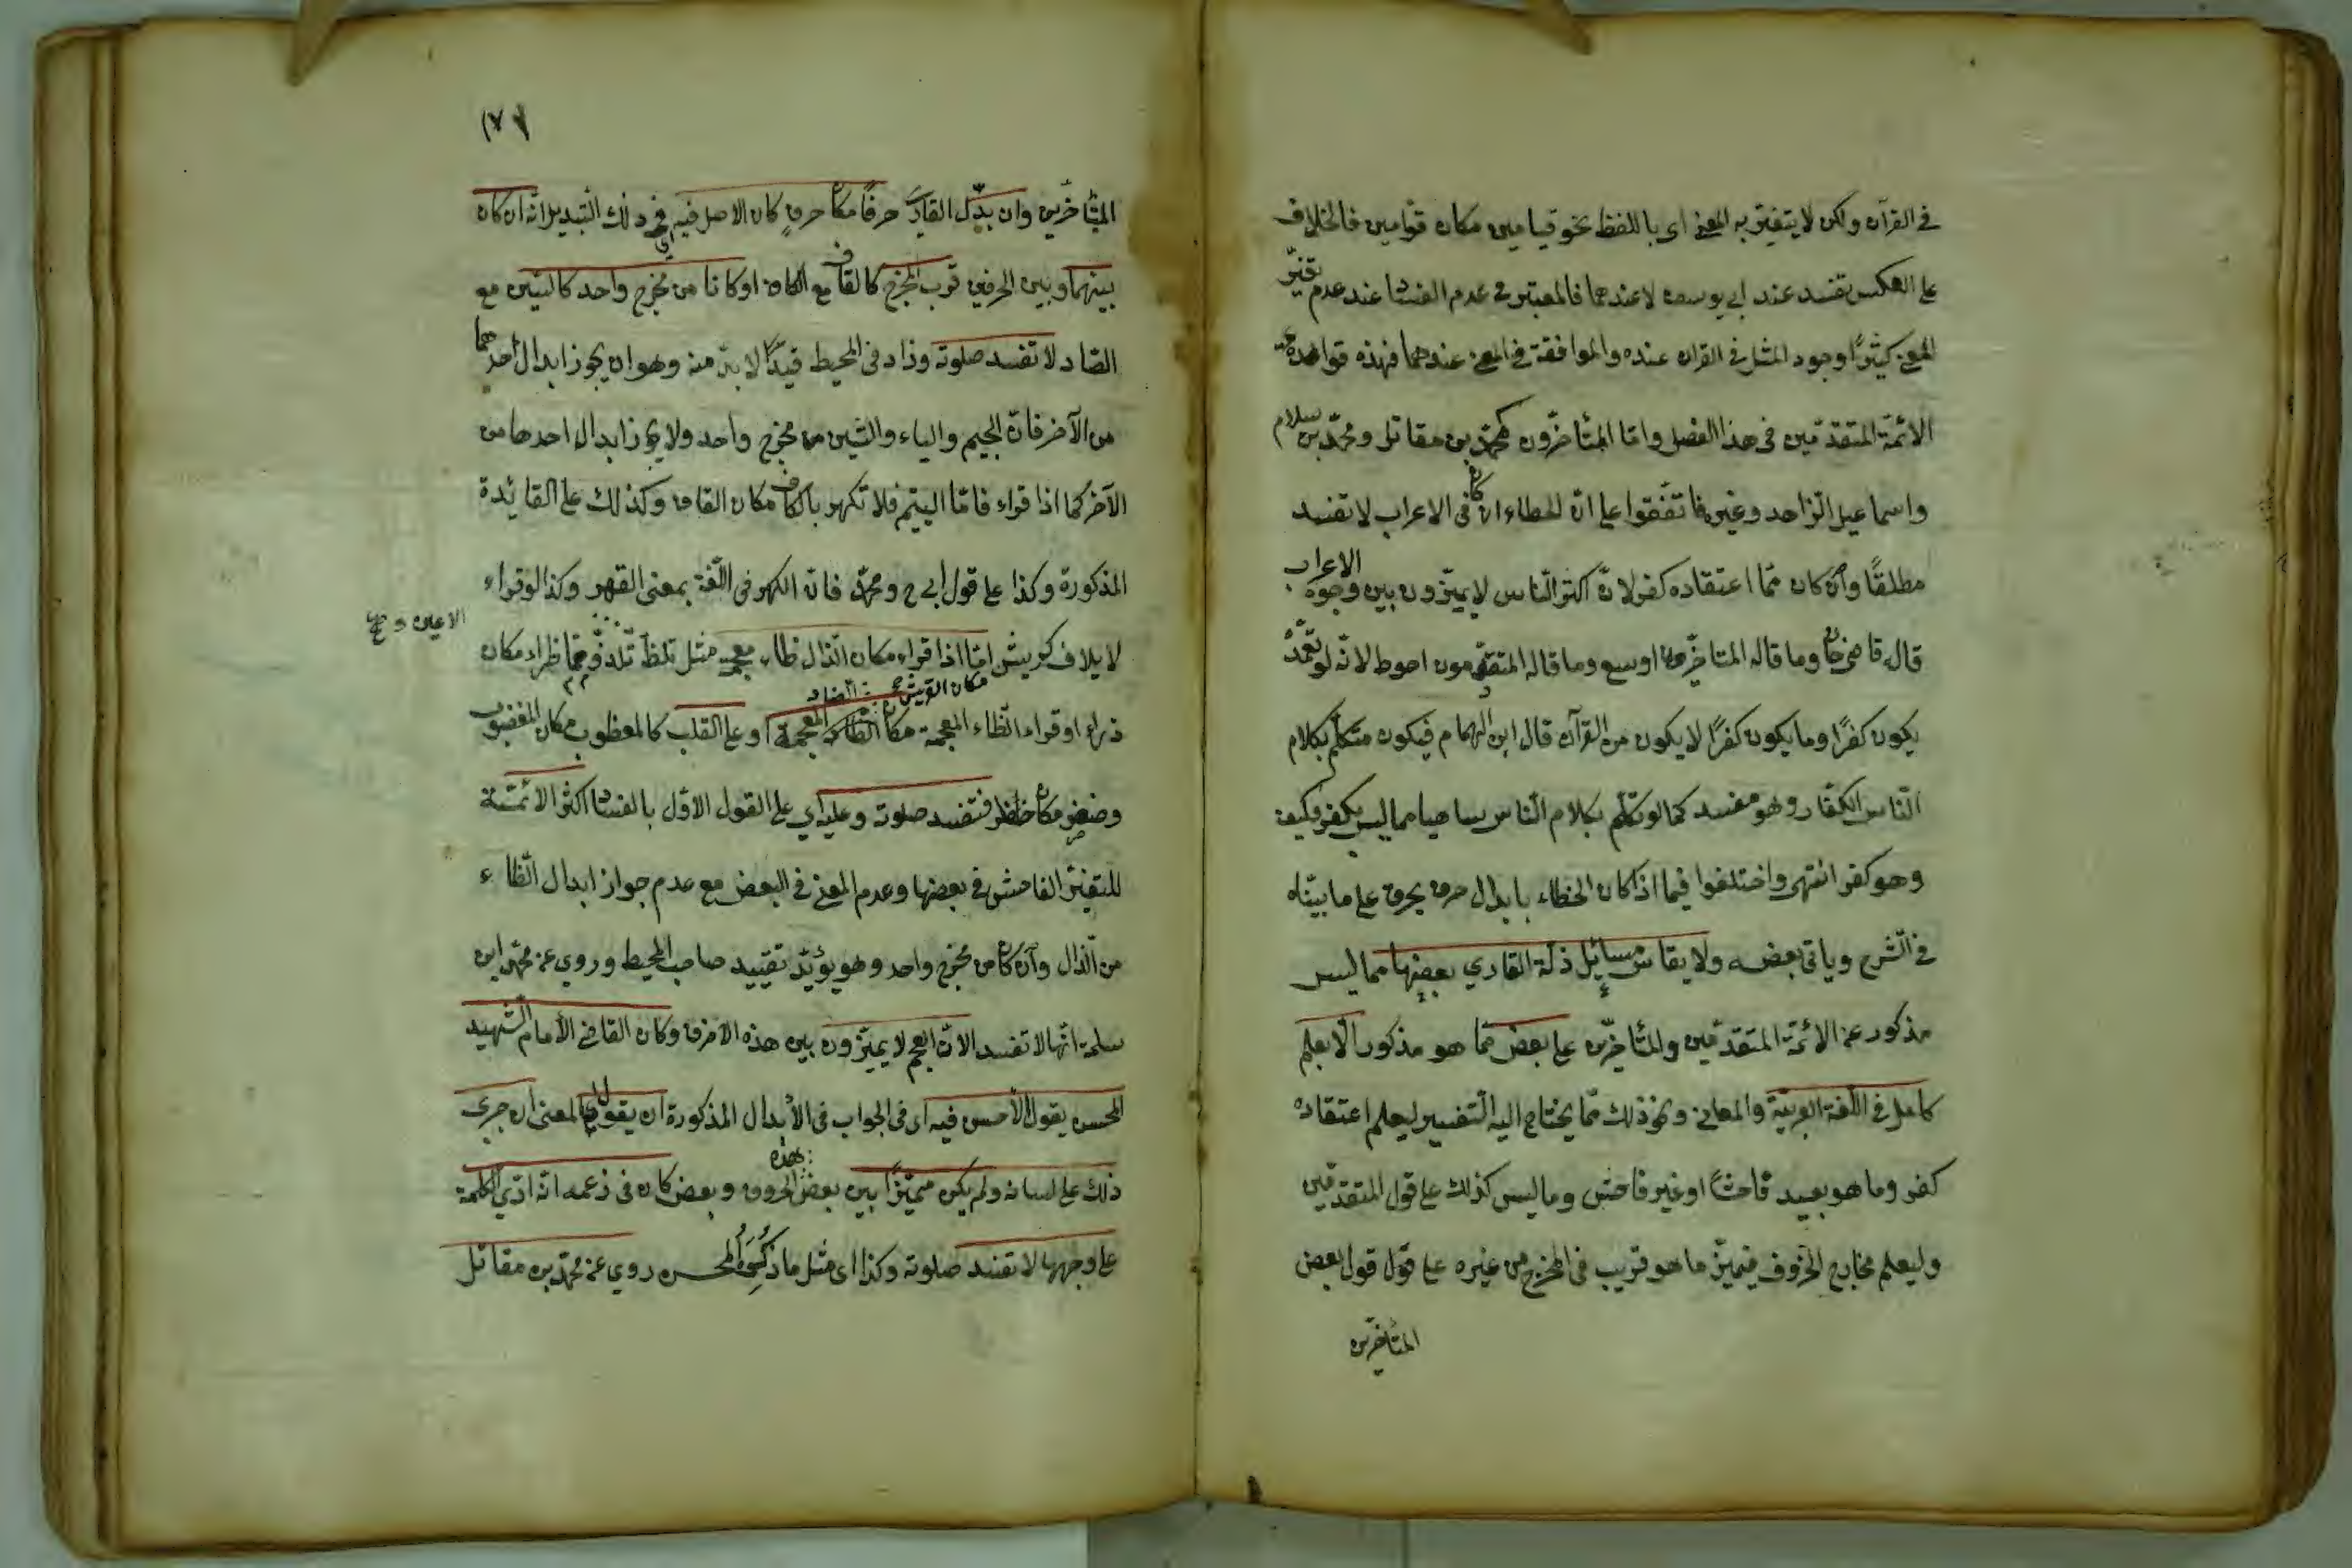 في القرآن ولكن لا يتغير به المعنى اى باللفظ نحو قيامين مكان قوامين فالخلاف
على العكس تفسد عند ابي يوسف لا عندهما فالمعتبر في عدم الفساد عند عدم تغير
المعنى كثيرًا وجود المثل في القران عنده والموافقة في المعنى عندهما فهذه قواعد
الائمة المتقدمين في هذا الفصل واما المتأخرون كمحمد بن مقاتل ومحمد بن سلام
واسماعيل الزاهد وغيره فاتفقوا على انّ الخطاء ان كان في الاعراب لا تفسد
مطلقًا وان كان مما اعتقاده كفر لانّ اكثر الناس لا يميزون بين وجوه الاعراب
قال قاضي خان وما قاله المتاخرون اوسع وما قاله المتقدمون احوط لانه لو تعمد
يكون كفرًا وما يكون كفرًا لا يكون من القرآن قال ابن الهمام فيكون متكلم بكلام
الناس الكفار وهو مفسد كما لو تكلم بكلام الناس ساهيا مما ليس بكفر فكيف
وهو كفر انتهى واختلفوا فيما اذا كان الخطاء بابدال حرف بحرف على ما بيناه
في الشرح وياتي بعضه ولا يقاس مسائل ذلة القاري بعضها مما ليس
مذكور عن الائمة المتقدمين والمتأخرين على بعض مما هو مذكور الا بعلم
كامل في اللغة العربية والمعاني ونحو ذلك مما يحتاج اليه التفسير ليعلم اعتقاده
كفر وما هو بعيد فاحشًا او غير فاحش وما ليس كذلك على قول المتقدمين
وليعلم مخارج الحروف فيميز ما هو قريب في المخرج من غيره على قول قول بعض
المتأخرين
المتأخرين وان بدّل القاري حرفًا مكان حرفٍ كان الاصل فيه اي في ذلك التبديل انه ان كان
بينهما وبين الحرفين قرب المخرج كالقاف مع الكاف او كانا من مخرج واحد كالسين مع
الصّاد لا تفسد صلوته وزاد في المحيط قيدًا لا بد منه وهو ان يجوز ابدال احدهما
من الآخر فانّ الجيم والياء والشين من مخرج واحد ولا يجوز ابدال احدها من
الآخر كما اذا قراء فامّا اليتيم فلا تكهر بالكاف مكان القاف وكذلك على القائدة
المذكورة وكذا على قول ابي ح ومحمّد فانّ الكهر في اللّغة بمعنى القهر وكذا لو قراء
لايلاف كريش امّا اذا قراء مكان الذال ظاء معجمة مثل تلظّ تلذّ ومما ظراء مكان
مكان القريش
ذراء او قراء الظاء المعجمة مكان الضاد المعجمة او على القلب كالمعظوب مكان المغضوب
وضفر مكان ظفر فتفسد صلوته وعليه اي على القول الاوّل بالفساد اكثر الائمّة
للتغيّر الفاحش في بعضها وعدم المعنى في البعض مع عدم جواز ابدال الظاء
من الذال وان كان من مخرج واحد وهو يؤيّد تقييد صاحب المحيط وروي عن محمّد ابن
سلمة انّها لا تفسد لانّ العجم لا يميّزون بين هذه الاحرف وكان القاضي الأمام الشهيد
المحسن يقول الأحسن فيه اى في الجواب في الأبدال المذكورة ان يقول المعنى ان جرى
ذلك على لسانه ولم يكن مميّزًا بين بعض هذه الحروف وبعض كان في زعمه انه ادّى الكلمة
على وجهها لا تفسد صلوته وكذا اى مثل ما ذكره المحسن روي عن محمّد بن مقاتل